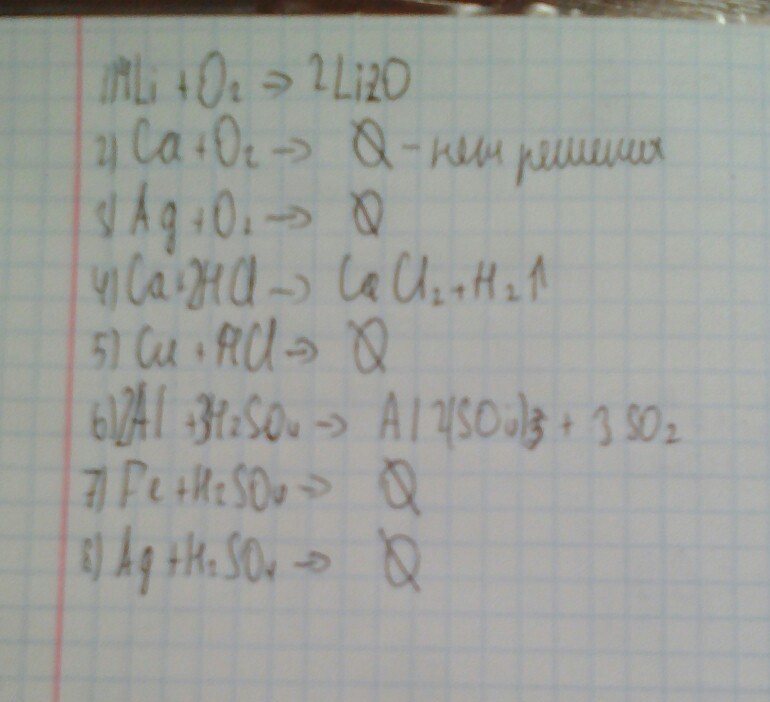 1) 4Li + O₂ => 2Li2O
2) Ca + O₂ -> Ø - нет решения
3) Ag + O₂ -> Ø
4) Ca + 2HCl -> CaCl₂ + H₂↑
5) Cu + HCl -> Ø
6) 2Al + 3H₂SO₄ -> Al2(SO₄)3 + 3SO₂
7) Fe + H₂SO₄ -> Ø
8) Ag + H₂SO₄ -> Ø